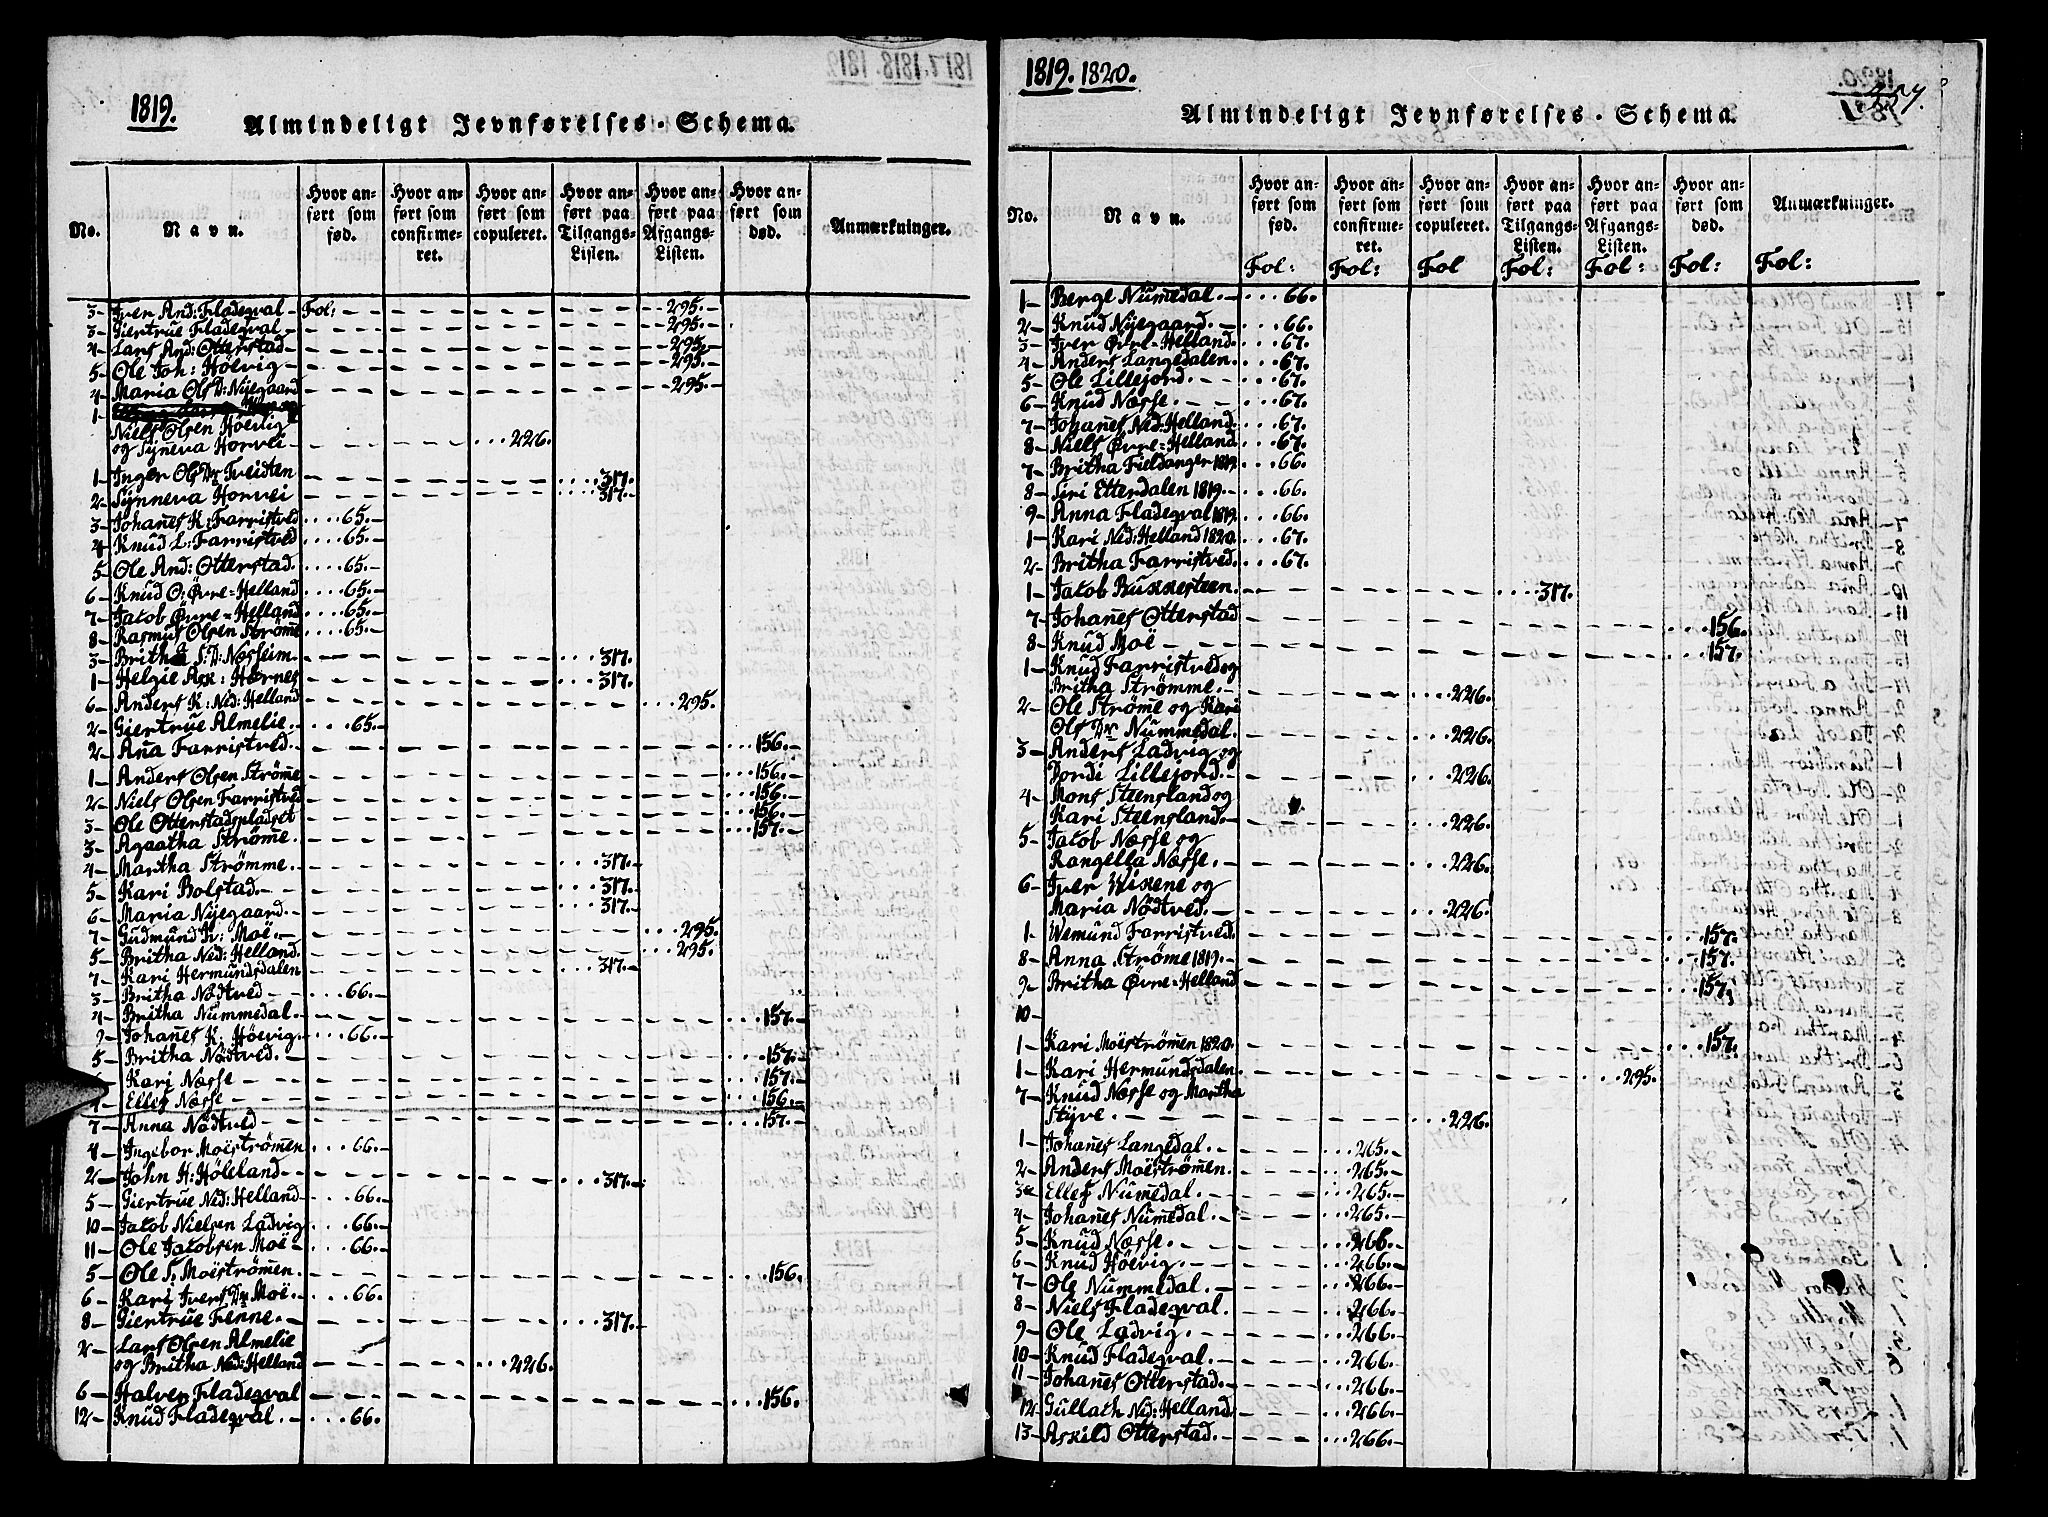 1819.
Almindeligt Jevnførelses-Schema.
No.
Navn.
Hvor anført som fød.
Hvor anført som confirmeret.
Hvor anført som copuleret.
Hvor anført paa Tilgangs-Listen.
Hvor anført paa Afgangs-Listen.
Hvor anført som død.
Anmærkninger.
3- Iver And: Fladeqval - Fol: 295.
3- Giertrue Fladeqval - 295.
4- Lars And: Otterstad - 295.
5- Ole Joh: Höevig - 295.
4- Maria Ols D: Nÿegaard 295.
1-
Niels Olsen Höevig
og Sÿneva Horvei - 226.
1- Inger Ols Dr Tveidten 317.
2- Sÿnneva Horvei 317.
3- Johañes K: Farristved 65.
4- Knud L: Farristved 65.
5- Ole And: Otterstad. 65.
6- Knud O: Övre=Helland 65.
7- Jacob Övre=Helland 65.
8- Rasmus Olsen Ströme 65.
3- Britha S: D: Næsheim. 317.
1- Helgie Ask: Hornes 317.
6- Anders K: Ned: Helland 295.
2- Giertrue Almelie. 65.
2- Aña Farristved. 156.
1- Anders Olsen Ströme 156.
2- Niels Olsen Farristved 156.
3- Ole Otterstadspladset 156.
3- Agaatha Ströme. 157.
4- Martha Strömme. 317.
5- Kari Bolstad. 317.
6- Maria Nÿegaard. 317.
7- Gudmund Iv: Moë. 295.
5- Britha Ned: Helland. 295.
7- Kari Hermundsdalen 317.
3- Britha Nödtved 66.
4- Britha Nummedal. 157.
9- Johañes K. Höevig. 66.
5- Britha Nödtved. 157.
Kari Næsse 157.
Elles Næsse 156.
7- Anna Nödtved 157.
4- Ingebor Moëströmen 66.
2- John H: Höleland 317.
5- Giertrue Ned: Helland 66.
10- Jacob Nielsen Ladvig 66.
11- Ole Jacobsen Moë 66.
5- Ole S: Moëströmen. 156.
6- Kari Ivers Dr Moë. 66.
8- Giertrue Fenne. 317.
2- Lars Olsen Almelie
og Britha Ned: Helland 226.
6- Halven Fladeqval 156.
12- Knud Fladeqval. 66.
1819. 1820.
Almindeligt Jevnførelses-Schema.
No.
Navn.
Hvor anført som fød. Fol:
Hvor anført som confirmeret. Fol:
Hvor anført som copuleret. Fol
Hvor anført paa Tilgangs-Listen. Fol:
Hvor anført paa Afgangs-Listen. Fol:
Hvor anført som død. Fol:
Anmærkninger. Fol:
1- Berge Nümedal. 66.
2- Knud Nÿegaard. 66.
3- Iver Övre=Helland. 67.
4- Anders Langedalen. 67.
5- Ole Lillejord. 67.
6- Knud Næsse. 67.
7- Johañes Ned: Helland. 67.
8- Niels Övre=Helland 67.
7- Britha Fieldanger 1819. 66.
8- Siri Etterdalen 1819. 66.
9- Anna Fladeqval 1819. 66.
1- Kari Ned: Helland 1820. 67.
2- Britha Farristved. 67.
1- Jacob Bukkesteen. 317.
7- Johañes Otterstad 156.
8- Knud Moë 157.
1- Knud Farristved og
Britha Strömme. 226.
2- Ole Ströme og Kari
Ols Dr Nummedal. 226.
3- Anders Ladvig og
Jordi Lillejord. 226.
4- Mons Steensland og
Kari Steensland. 226.
5- Jacob Næsse og
Rangella Næsse. 226.
6- Iver Wikene og
Maria Nödtved. 226.
1- Wemund Farristved. 157.
8- Anna Ströme 1819. 157.
9- Britha Övre=Helland 157.
10-
1- Kari Moëströmen 1820. 157.
1- Kari Hermundsdalen. 295.
7- Knud Næsse og Martha
Stÿve. 226.
1- Johañes Langedal. 265.
2- Anders Moëströmen. 265.
3- Elles Nümedal. 265.
4- Johañes Nümedal. 265.
5- Knud Næsse. 266.
6- Knud Höevig. 266.
7- Ole Nummedal. 266.
8- Niels Fladeqval. 266.
9- Ole Ladvig. 266.
10- Knud Fladeqval. 266.
11- Johañes Otterstad. 266.
12- Gullach Ned: Helland 266.
13- Askild Otterstad. 266.